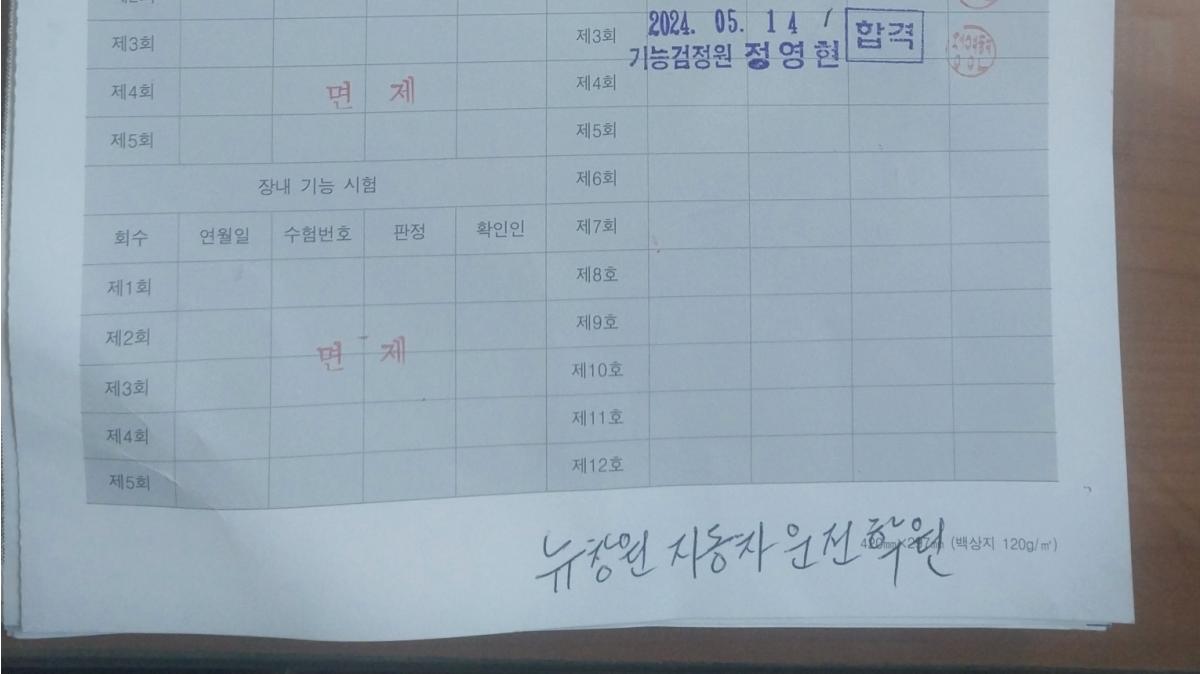 제3회
제4회 면 제
제5회
장내 기능 시험
회수 연월일 수험번호 판정 확인인
제1회
제2회
면 제
제3회
제4회
제5회
2024. 05. 14
제3회 합격
기능검정원 정영현
제4회
제5회
제6회
제7회
제8호
제9호
제10호
제11호
제12호
뉴창원 자동차 운전 학원
(백상지 120g/㎡)